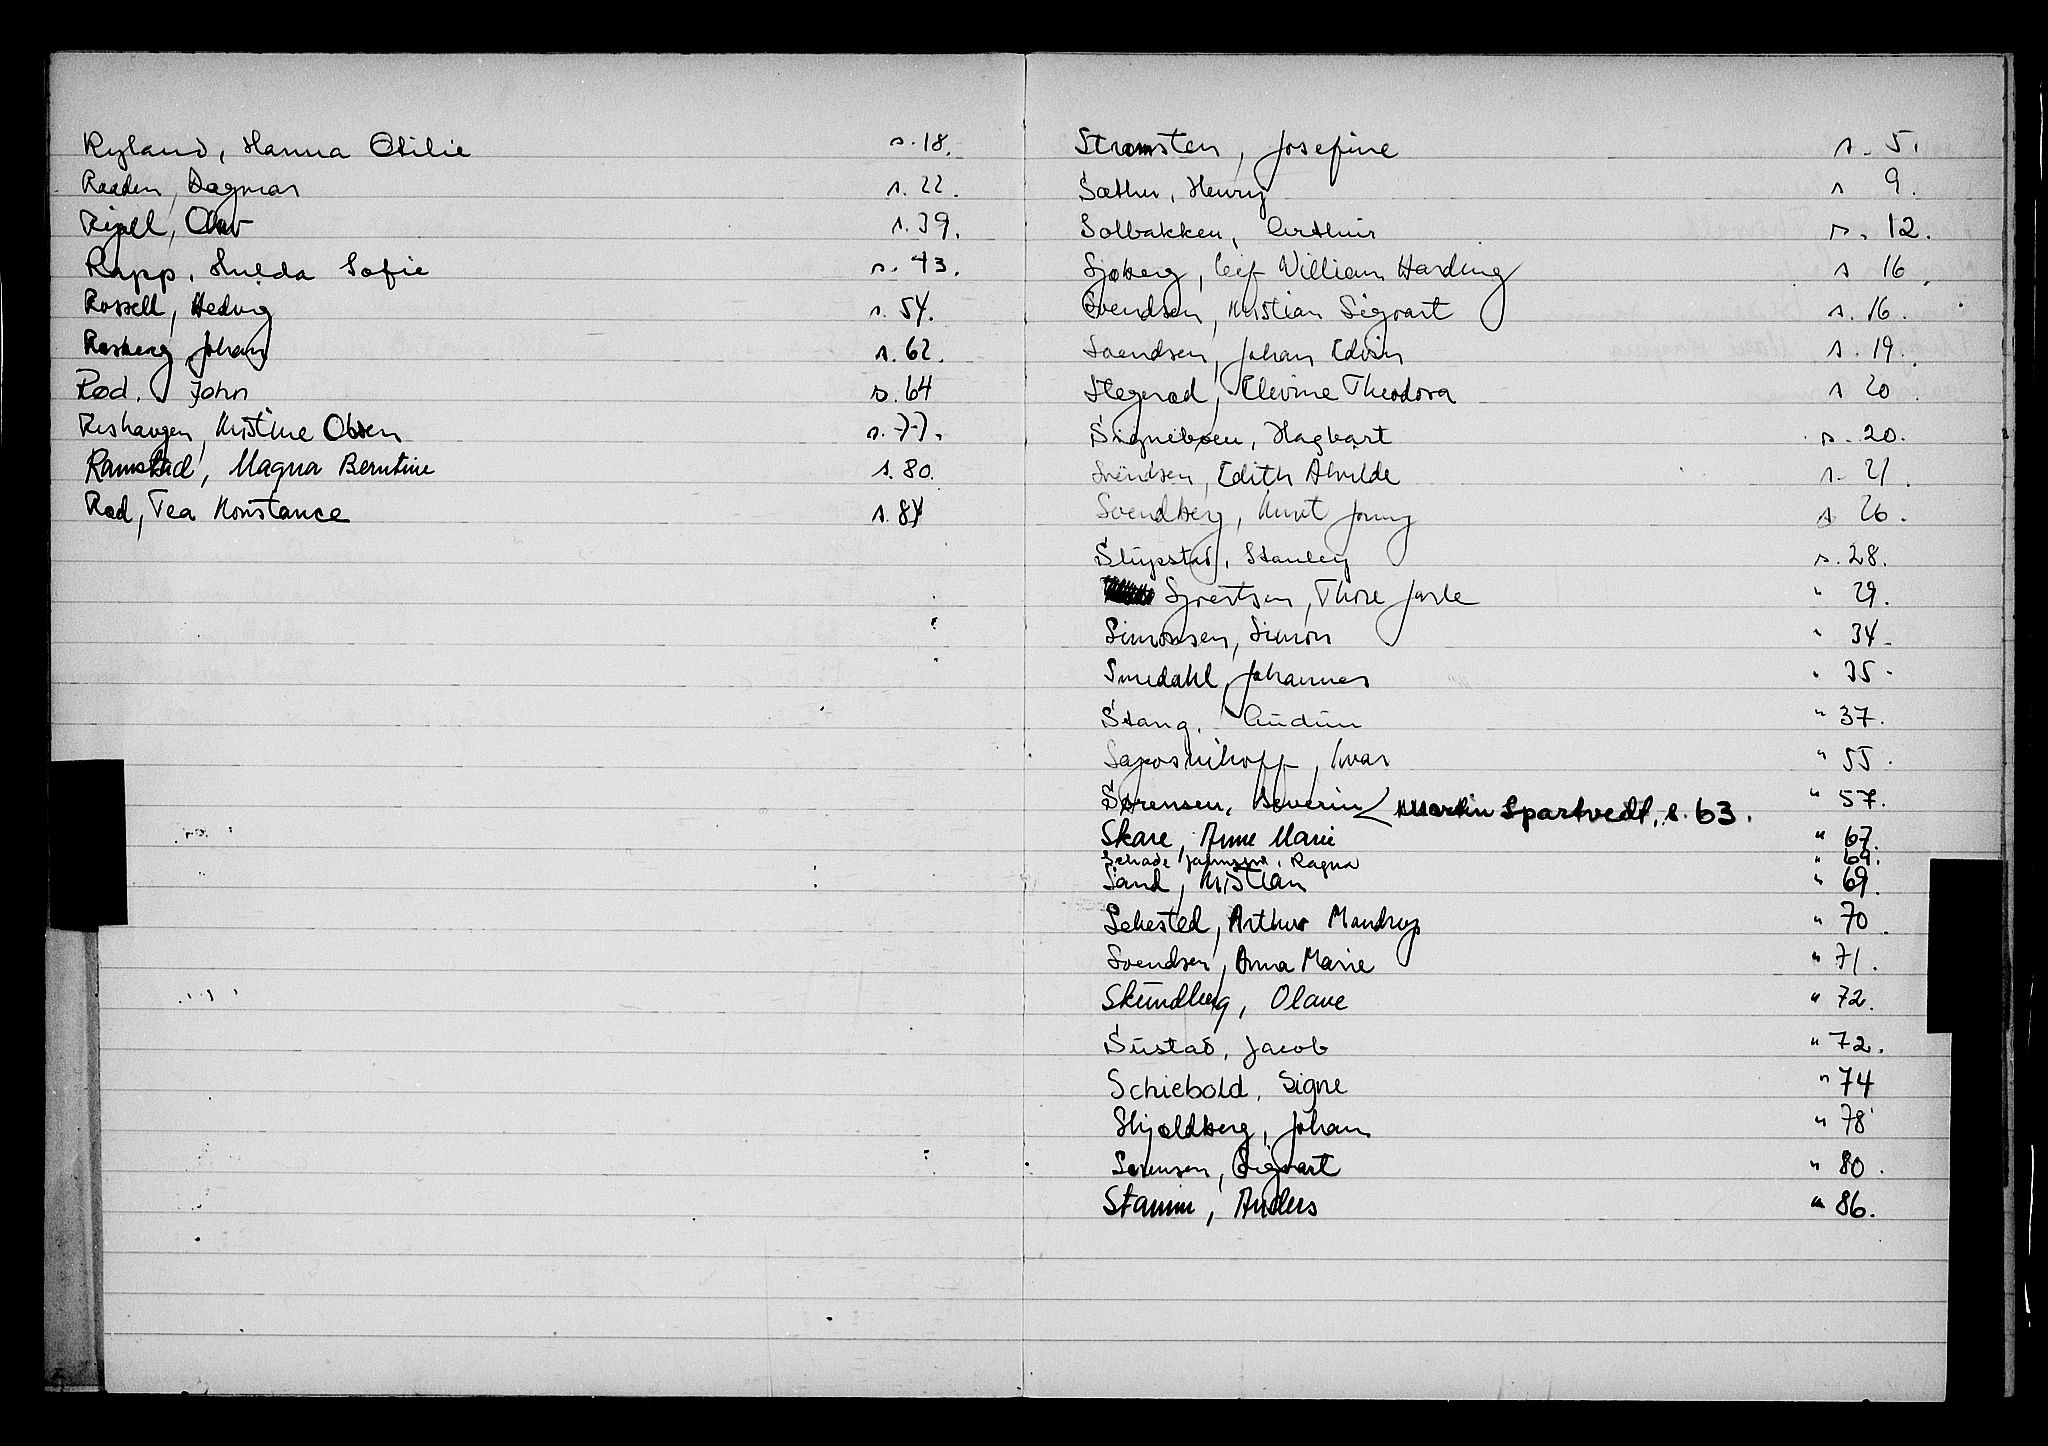 Ryland, Hanna Otilie s. 18.
Raaden, Dagmar s. 22.
Rigell, Olav s. 39.
Rapp, Hulda Sofie s. 43.
Rossell, Hedvig s. 54.
Rosberg, Johan s. 62.
Rød, John s. 64
Rishaugen, Kristine Olsen s. 77.
Ramstad, Magna Berntine s. 80.
Rød, Tea Konstance s. 84
Strømsten, Josefine s. 5.
Sæther, Henry s 9.
Solbakken, Arthur s. 12.
Sjøberg, Leif William Harding s 16.
Svendsen, Kristian Sigvart s. 16.
Svendsen, Johan Edvin s. 19.
Stegerød, Elevine Theodora s 20
Signebøen, Hagbart s. 20.
Svendsen, Edith Alvilde s. 21.
Svendberg, Kurt Jonny s 26.
Slupstad, Stanley s. 28.
Sjvertsen, Thore Jarle " 29.
Simonsen, Simon " 34.
Smedahl, Johannes " 35.
Stang, Gudrun " 37.
Saposnikoff, Ivar " 55.
Sørensen, Severin / Martin Spartvedt, s. 63. " 57.
Skare, Anne Marie " 67.
Schade Johnssen, Ragna " 69.
Sand, Kristian " 69.
Sehested, Arthur Mandrup " 70.
Svendsen, Anna Marie " 71.
Skundberg, Olave " 72.
Sustad, Jacob " 72.
Schiebold, Signe " 74
Skjøldberg, Johan " 78
Sørensen, Sigvart " 80.
Stamm, Anders " 86.